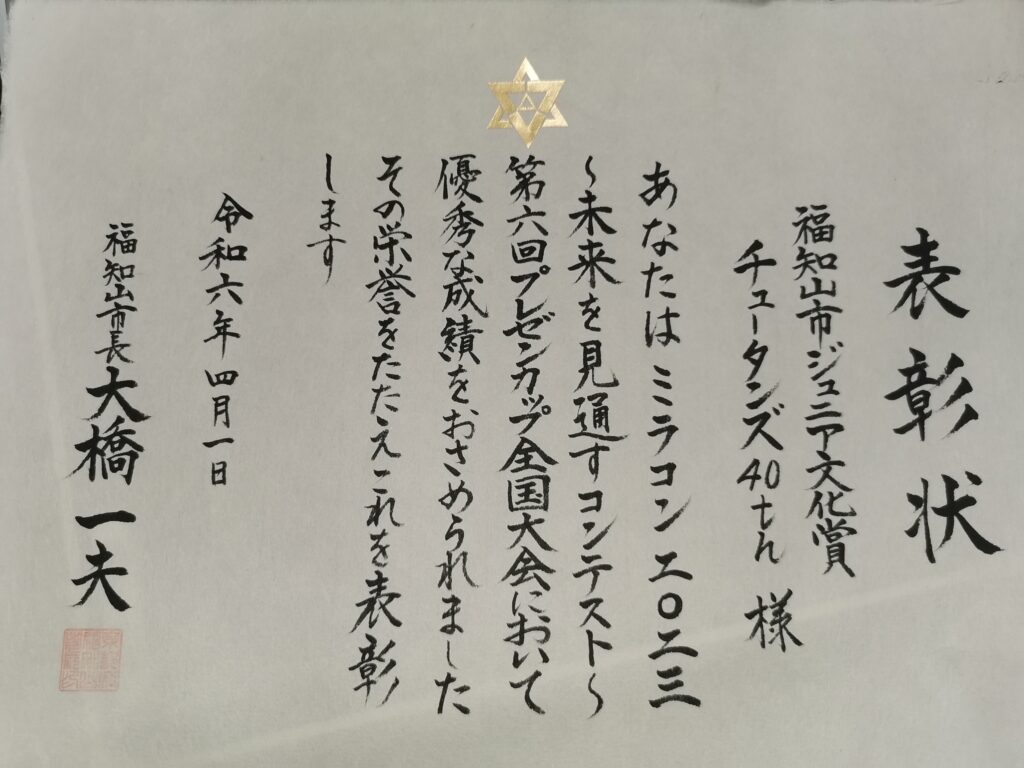 表彰状
福知山市ジュニア文化賞
チュータンズ40th 様
あなたは ミラコン 二〇二三
～未来を見通すコンテスト～
第六回プレゼンカップ全国大会において
優秀な成績をおさめられました
その栄誉をたたえこれを表彰
します
令和六年四月一日
福知山市長 大橋一夫